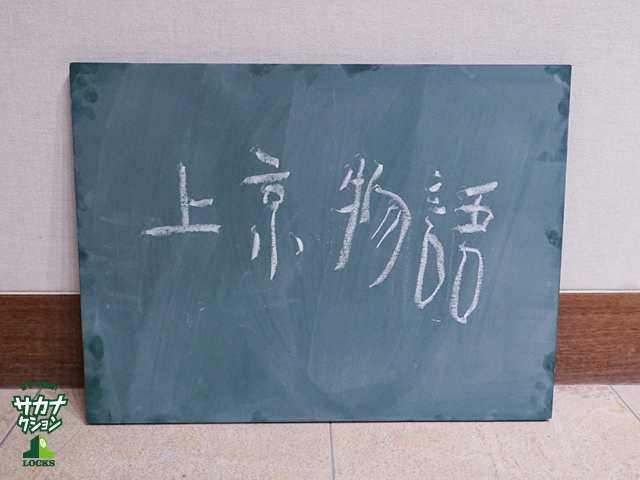 上京物語
サカナ
クション
LOCKS